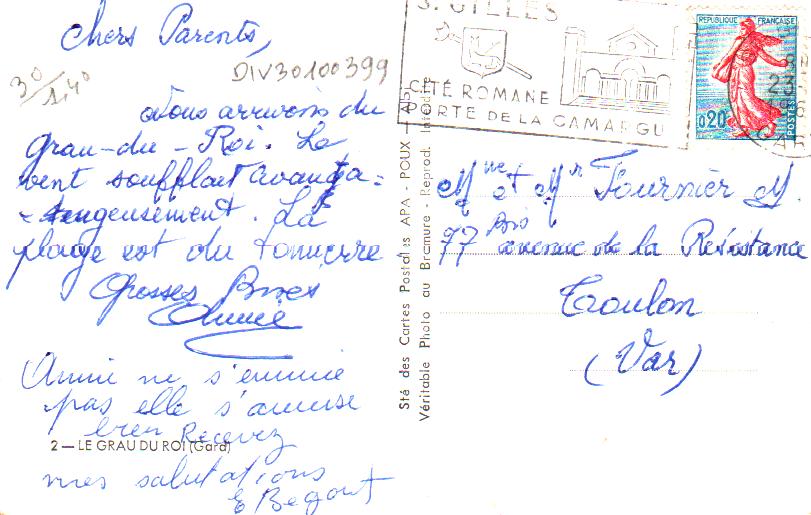 Chers Parents,
DIV30100399
Nous arrivons du
Grau-du-Roi. Le
vent soufflait avanta=
-tageusement. La
plage est du tonnerre
Grosses Bises
Annie
Annie ne s'ennuie
pas elle s'amuse
bien Recevez
2 — LE GRAU DU ROI (Gard)
mes salutations
E Begout
Sté des Cartes Postales APA - POUX - ALBI
Véritable Photo au Bromure - Reprod. Interdite
S. GILLES
CITÉ ROMANE
PORTE DE LA CAMARGUE
REPUBLIQUE FRANÇAISE
0,20
POSTES
23
Mme et Mr Fournier M.
77 Bis avenue de la Résistance
Toulon
(Var)